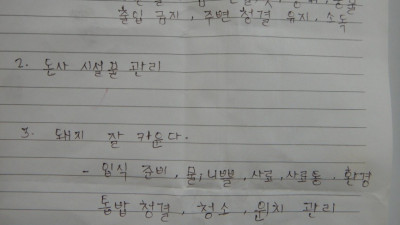 출입 금지, 주변 청결 유지, 소독
2. 돈사 시설물 관리
3. 돼지 잘 키운다.
- 입식 준비, 물, 니쁠, 사료, 사료통, 환경
톱밥 청결, 청소, 위치 관리